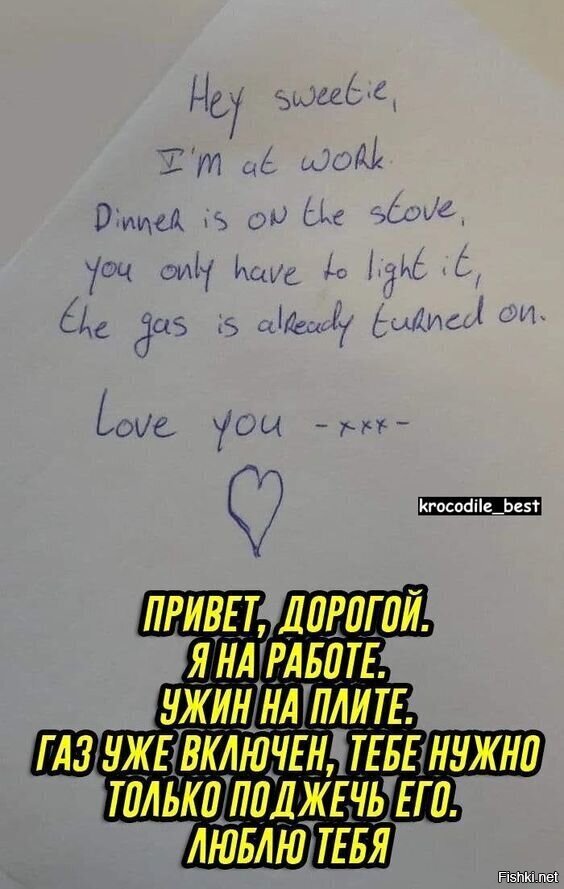 Hey sweetie,
I'm at work.
Dinner is on the stove,
you only have to light it,
the gas is already turned on.
Love you -xxx-
krocodile_best
ПРИВЕТ, ДОРОГОЙ.
Я НА РАБОТЕ.
УЖИН НА ПЛИТЕ.
ГАЗ УЖЕ ВКЛЮЧЕН, ТЕБЕ НУЖНО
ТОЛЬКО ПОДЖЕЧЬ ЕГО.
ЛЮБЛЮ ТЕБЯ
Fishki.net